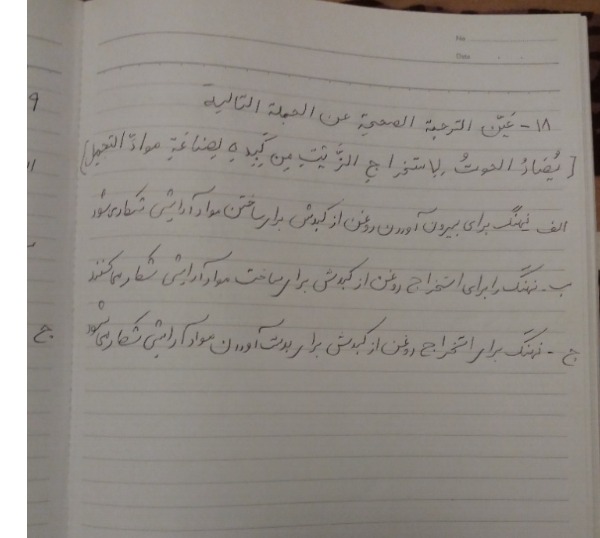 No
Date
۱۸ - عَیّن الترجمة الصحیحة عن الجملة التالیة
[یُصادُ الحوتُ لِاستخراجِ الزَّیتِ مِن کَبِدِهِ لِصناعَةِ موادِّ التجمیل]
الف نهنگ برای بیرون آوردن روغن از کبدش برای ساختن مواد آرایشی شکار می‌شود
ب - نهنگ را برای استخراج روغن از کبدش برای ساخت مواد آرایشی شکار می‌کنند
ج - نهنگ برای استخراج روغن از کبدش برای بدست آوردن مواد آرایشی شکار می‌شود
ج